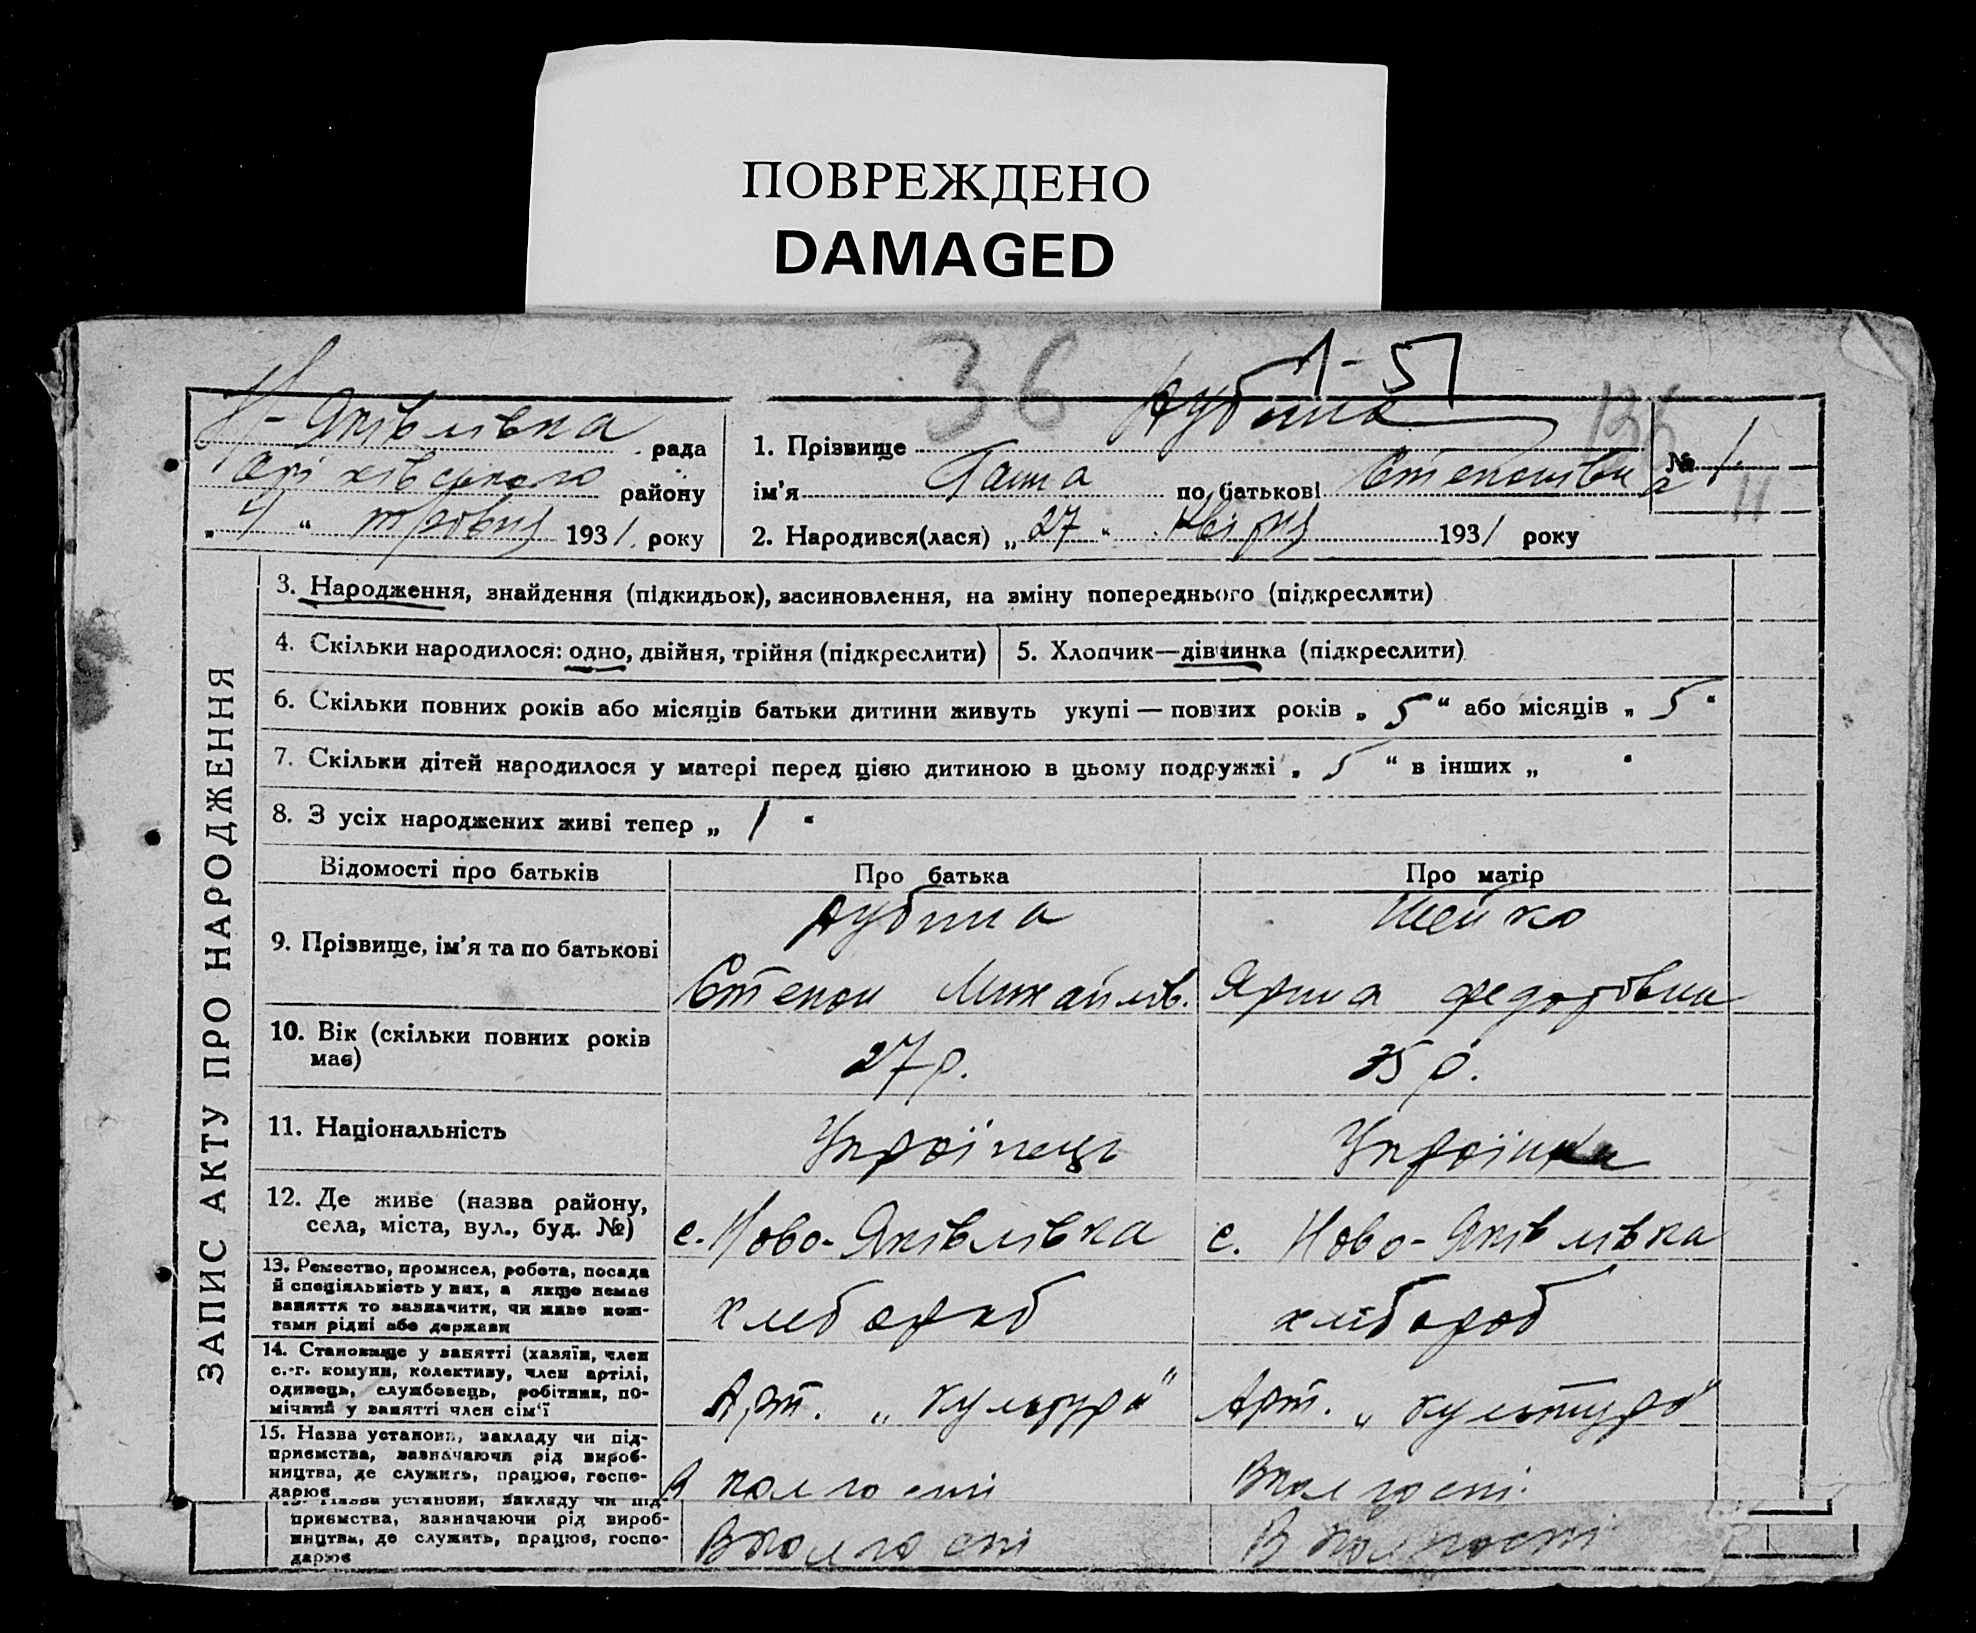 ПОВРЕЖДЕНО
DAMAGED
36
1-5
136
Н-Яківлівка рада
Оріхівського району
„ 4 “ травня 1931 року
1. Прізвище Дубина
ім’я Ганна по батькові Степанівна
№ 1
11
2. Народився(лася) „ 27 “ квітня 1931 року
ЗАПИС АКТУ ПРО НАРОДЖЕННЯ
3. Народження, знайдення (підкидьок), засиновлення, на зміну попереднього (підкреслити)
4. Скільки народилося: одно, двійня, трійня (підкреслити) 5. Хлопчик—дівчинка (підкреслити)
6. Скільки повних років або місяців батьки дитини живуть укупі — повних років „ 5 “ або місяців „ 5 “
7. Скільки дітей народилося у матері перед цією дитиною в цьому подружжі „ 5 “ в інших „ “
8. З усіх народжених живі тепер „ 1 “
Відомості про батьків Про батька Про матір
9. Прізвище, ім’я та по батькові
Дубина Шейко
Степан Михайлов. Ярина Федоровна
10. Вік (скільки повних років
має)
27 р. 35 р.
11. Національність Українець Українка
12. Де живе (назва району,
села, міста, вул., буд. №)
с. Ново-Яківлівка с. Ново-Яківлівка
13. Ремество, промисел, робота, посада
й спеціяльність у них, а якщо немає
заняття то зазначити, чи живе кош-
тами рідні або держави
хлебороб хлібороб
14. Становище у занятті (хазяїн, член
с.-г. комуни, колективу, член артілі,
одинець, службовець, робітник, по-
мічний у занятті член сім’ї
Арт. „Культура“ Арт. „Культура“
15. Назва установи, закладу чи під-
приємства, зазначаючи рід вироб-
ництва, де служить, працює, госпо-
дарює
В колгоспі В колгоспі
15. Назва установи, закладу чи під-
приємства, зазначаючи рід вироб-
ництва, де служить, працює, госпо-
дарює
В колгоспі В колгоспі